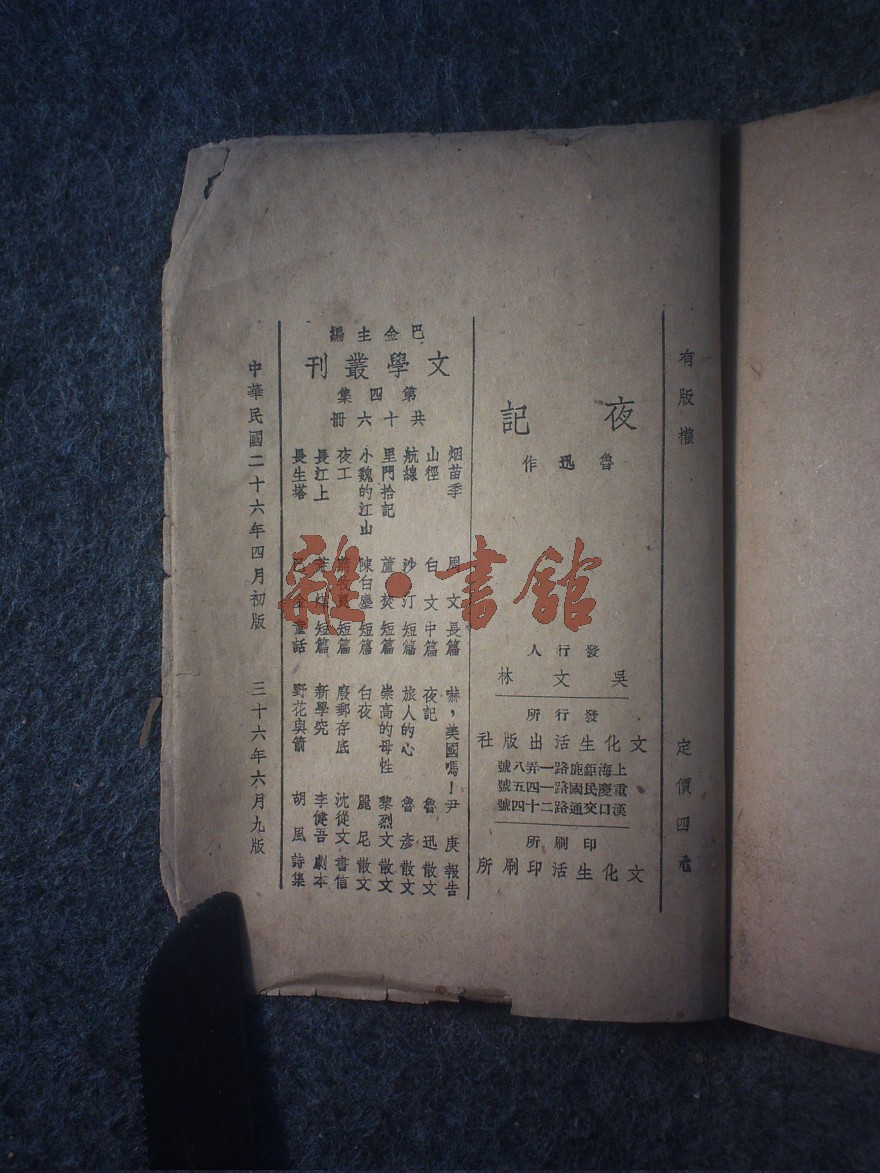 有版權
定價四元
夜記
魯迅作
發行人
吳文林
發行所
文化生活出版社
上海鉅鹿路一弄八號
重慶民國路一四五號
漢口交通路二十四號
印刷所
文化生活印刷所
巴金主編
文學叢刊
第四集
共十六冊
烟苗季 周文 長篇
山徑 白文 中篇
航線 沙汀 短篇
里門拾記 蘆焚 短篇
小魏的江山 陳白塵 短篇
夜工 蔣牧良 短篇
長江上 荒煤 短篇
長生塔 巴金 童話
嚇，美國嗎！ 尹庚 報告
夜記 魯迅 散文
旅人的心 魯彥 散文
崇高的母性 黎烈文 散文
白夜 麗尼 散文
廢郵存底 沈從文 書信
新學究 李健吾 劇本
野花與箭 胡風 詩集
中華民國二十六年四月初版 三十六年六月九版
雜·書館